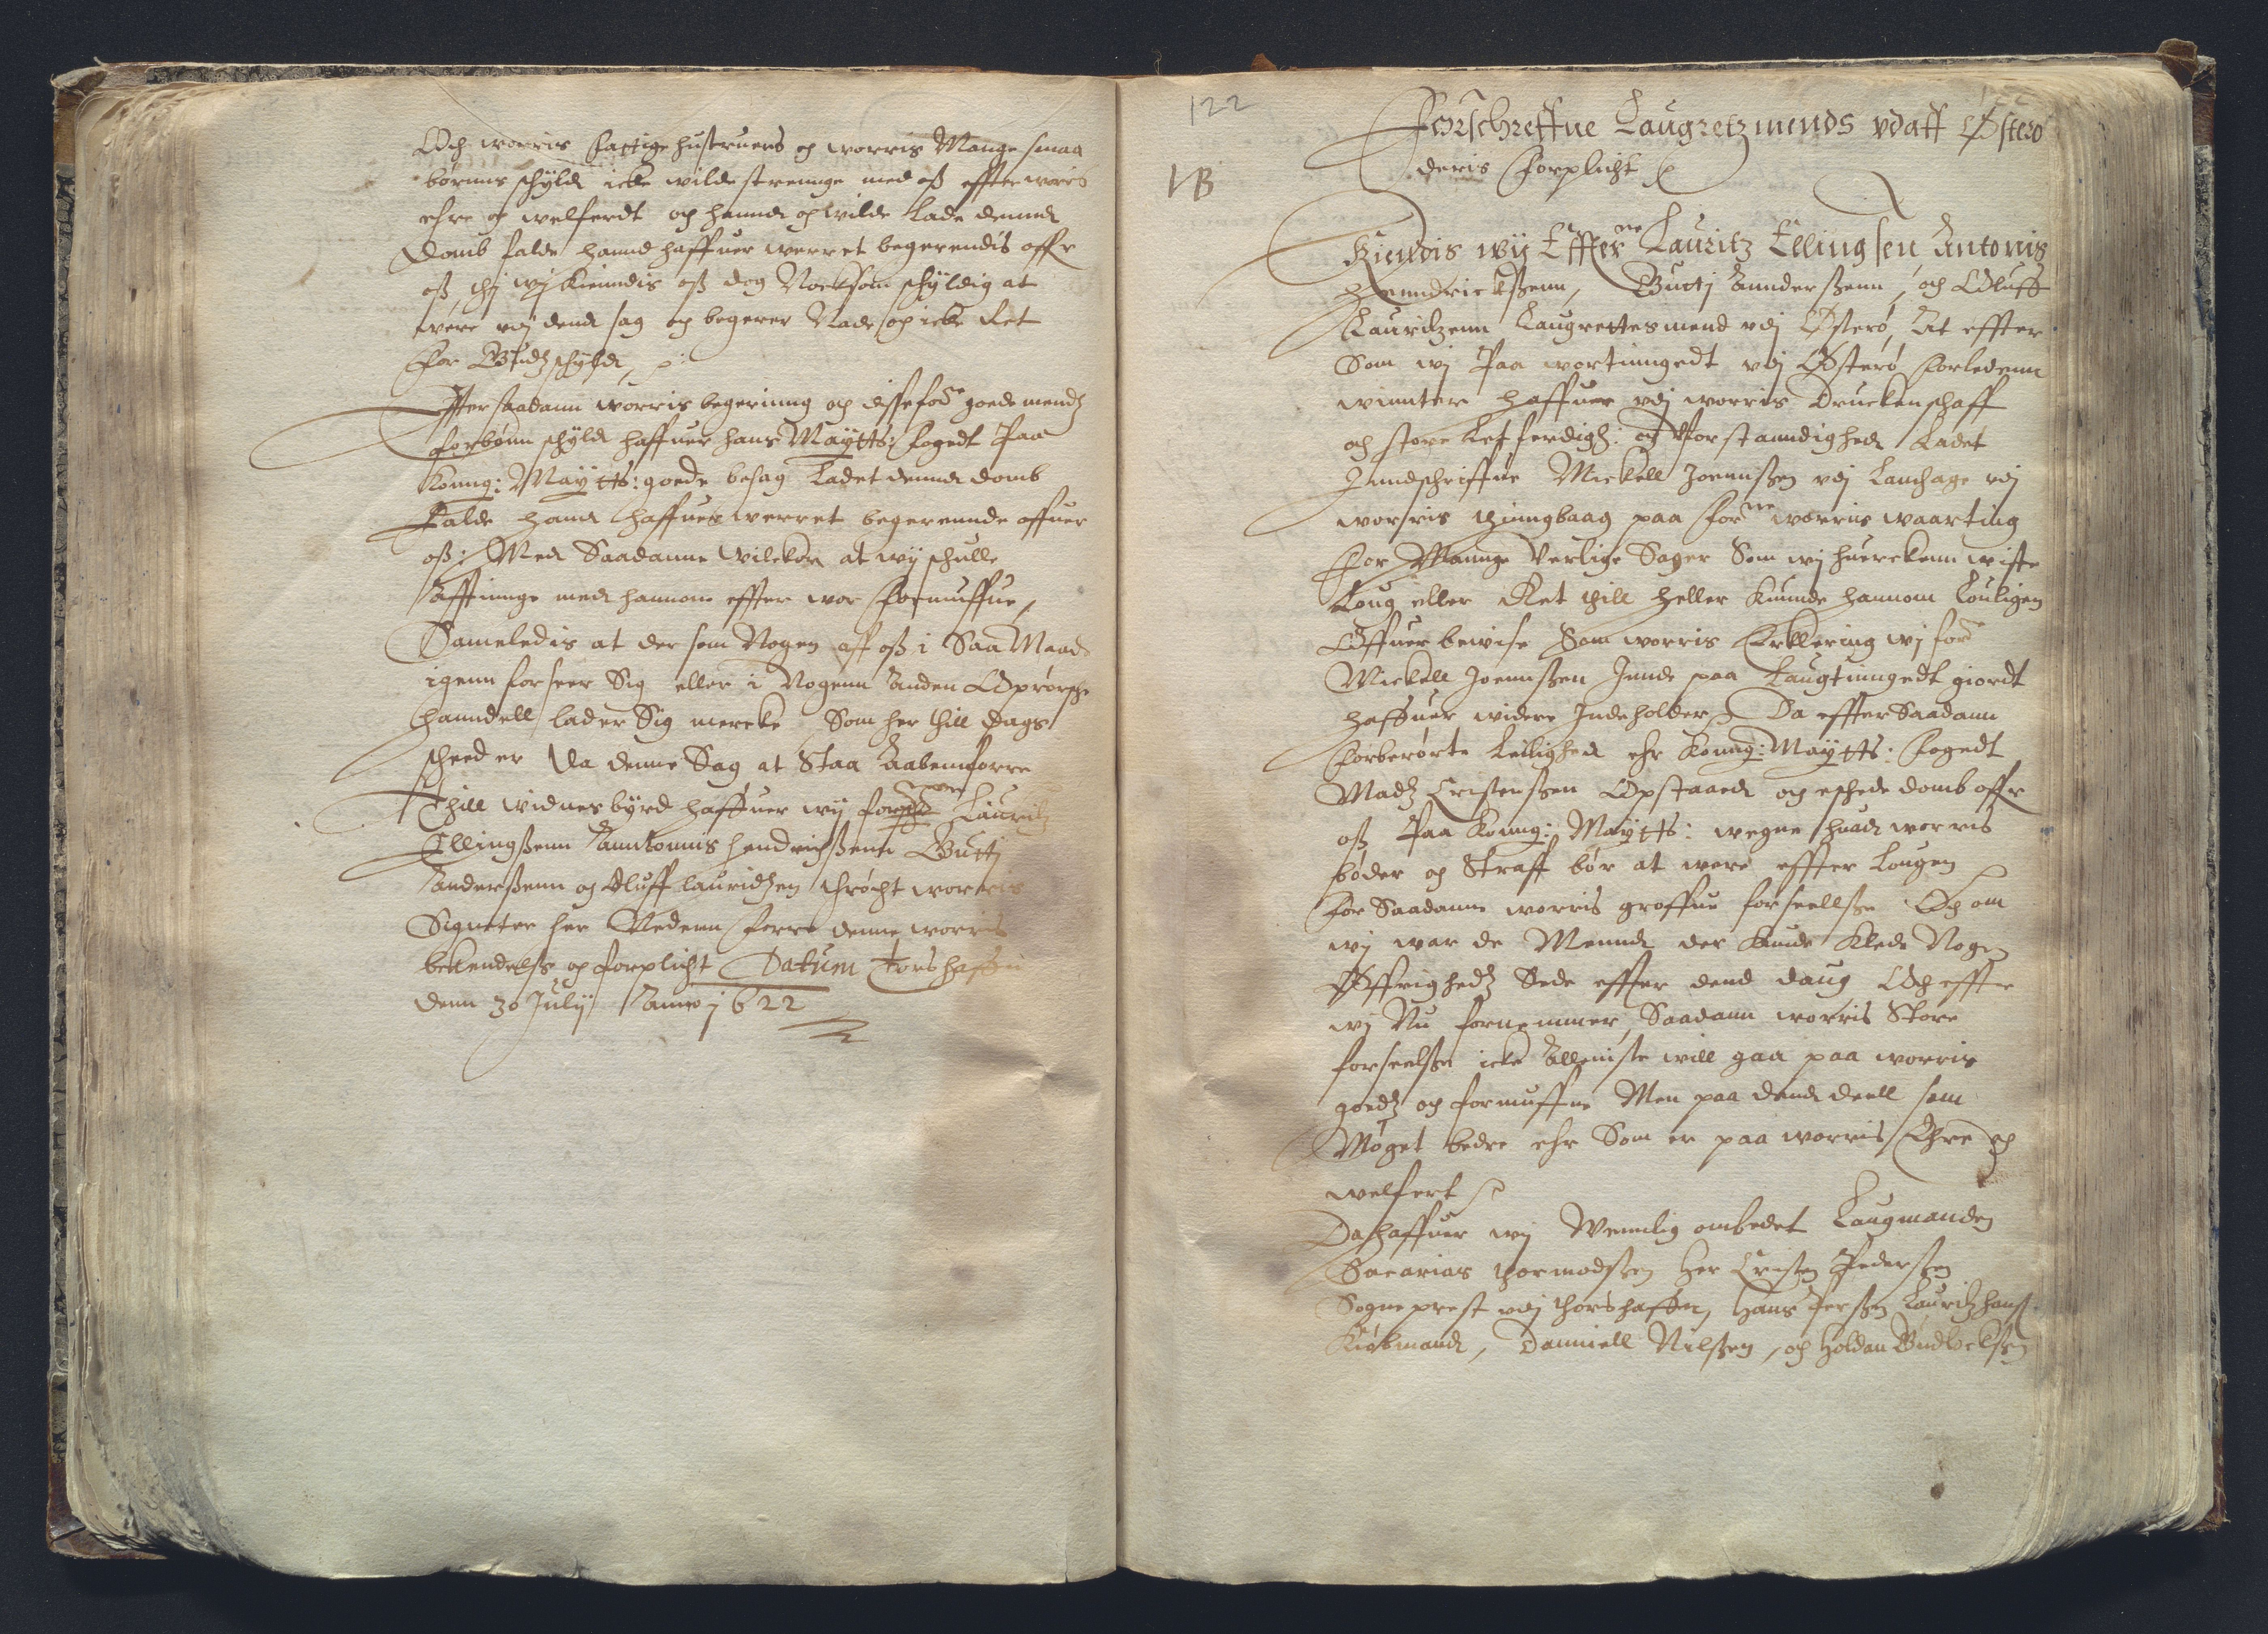 Och worris fattige hustruers og worris Mange smaa
børnns schyld icke wilde strennge med oß effter worris
ehre og welferdt och hannd og wilde Lade dennd
Domb falde hannd haffuer werret begerendis offr
oß, thj wj Kienndis oß dog Nocksom schyldig at
were vdj dend sag og begerer Nade og icke Ret
for Gudz schyld,
Effter saadann worris begering och disse forne goede mendz
forbønn schyld haffuer hans Maytts: fogedt Paa
Konng: Maytts: goede behag Ladet dennd domb
Falde hand haffuer werret begerennde offuer
oß: Med Saadanne Vilckor at wy schulle
Afftinnge med hannom effter wor formuffue,
Sameledis at der som Nogen aff oß i Saa Maade
igenn forseer Sig eller i Nogenn Anden Oprørsche
hanndell lader Sig mercke Som her thill dags
scheed er Da denne Sag at Staa Aabennforre
Thill widnesbyrd haffuer wy forne Lauridz
Ellingßenn Anntonnis Hendrichßenn Gutti
Anderßenn og Oluff lauridzen thrøcht worris
Signeter her Nedenn forre denne worris
bekendelse og forplicht Datum Torshaffn
denn 30 Julij Anno 1622
122
Forschreffne Laugretz mends vdaff Østerø
deris forplicht
IB
Kiendis wij Effterne Lauritz Ellingsen Antonis
Henndrickßenn, Gutti Annderßenn, och Oluff
Lauridzenn Laugrettesmend vdj Østerø, At effter
Som wj Paa wortinngedt vdj Østerø forledenn
winnter haffuer vdj worris Druckenschaff
och store Letferdigh: og Vforstanndighed Ladet
Inndschriffue Mickell Joennßen vdj Lamhage vdj
worris thinngbaag paa forne worris waarting
for Mannge Verlige Sager Som wj huerckenn wiste
Loug eller Ret thill heller kunnde hannom Louligen
Offuerbewise Som worris Erklering wj forne
Mickell Joennßen Jnnde paa Laugtinngedt giordt
haffuer widere Indeholder, Da effter Saadann
forberørte Leilighed ehr Konng: Maytts: fogedt
Madz Cristenßen Opstaaed og eschede domb offr
oß Paa Konng: Maytts: wegne huad worris
bøder og Straff bør at were effter Lougen
for Saadann worris groffue forseellße Och om
wj war de Mennd der kunde Klede Nogen
Øffrighedz Sede effter dend daug Och effter
wj Nu fornemmer, Saadann worris Store
forseelße icke Alleniste will gaa paa worris
goedz og formuffue Men paa dend deell som
Møget bedre ehr Som er paa worris Ehre och
welfert
Da haffuer wj Wennlig ombedet Laugmanden
Sacarias thormodßen Her Cristen Pederßen
Sogneprest vdj thorshaffn, Hans Jerßen Lauridz hanß
Kiøbmand, Danniell Nilßen, och Holdan Gudlockßen